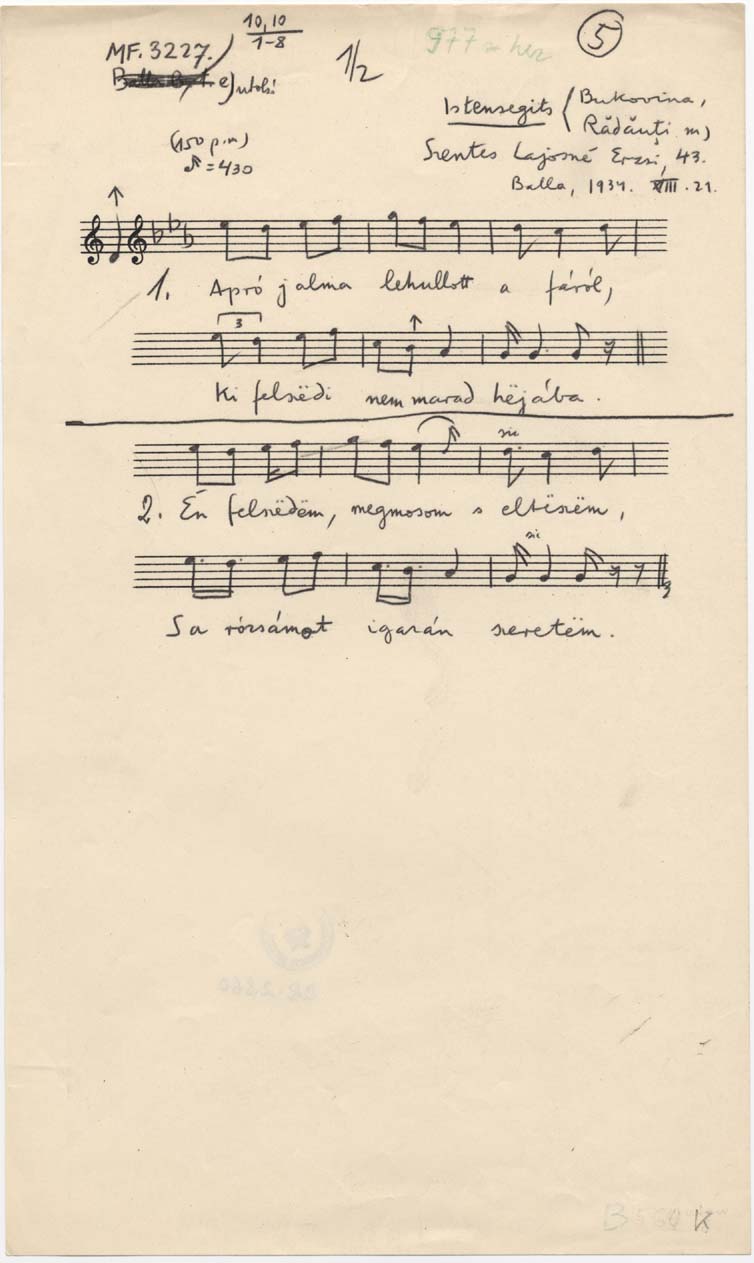 MF. 3227.)
10,10
1-8
1/2
977 = her
5
e) utolsó
Istensegits (Bukovina,
Rădăuţi m)
(150 p.m)
♪=430
Szentes Lajosné Erzsi, 43.
Balla, 1934. VIII. 21.
1. Apró jalma lehullott a fáról,
3
Ki felszëdi nem marad hëjába.
sic
2. Én felszëdëm, megmosom s eltëszëm,
sic
S a rózsámot igazán szeretëm.
K